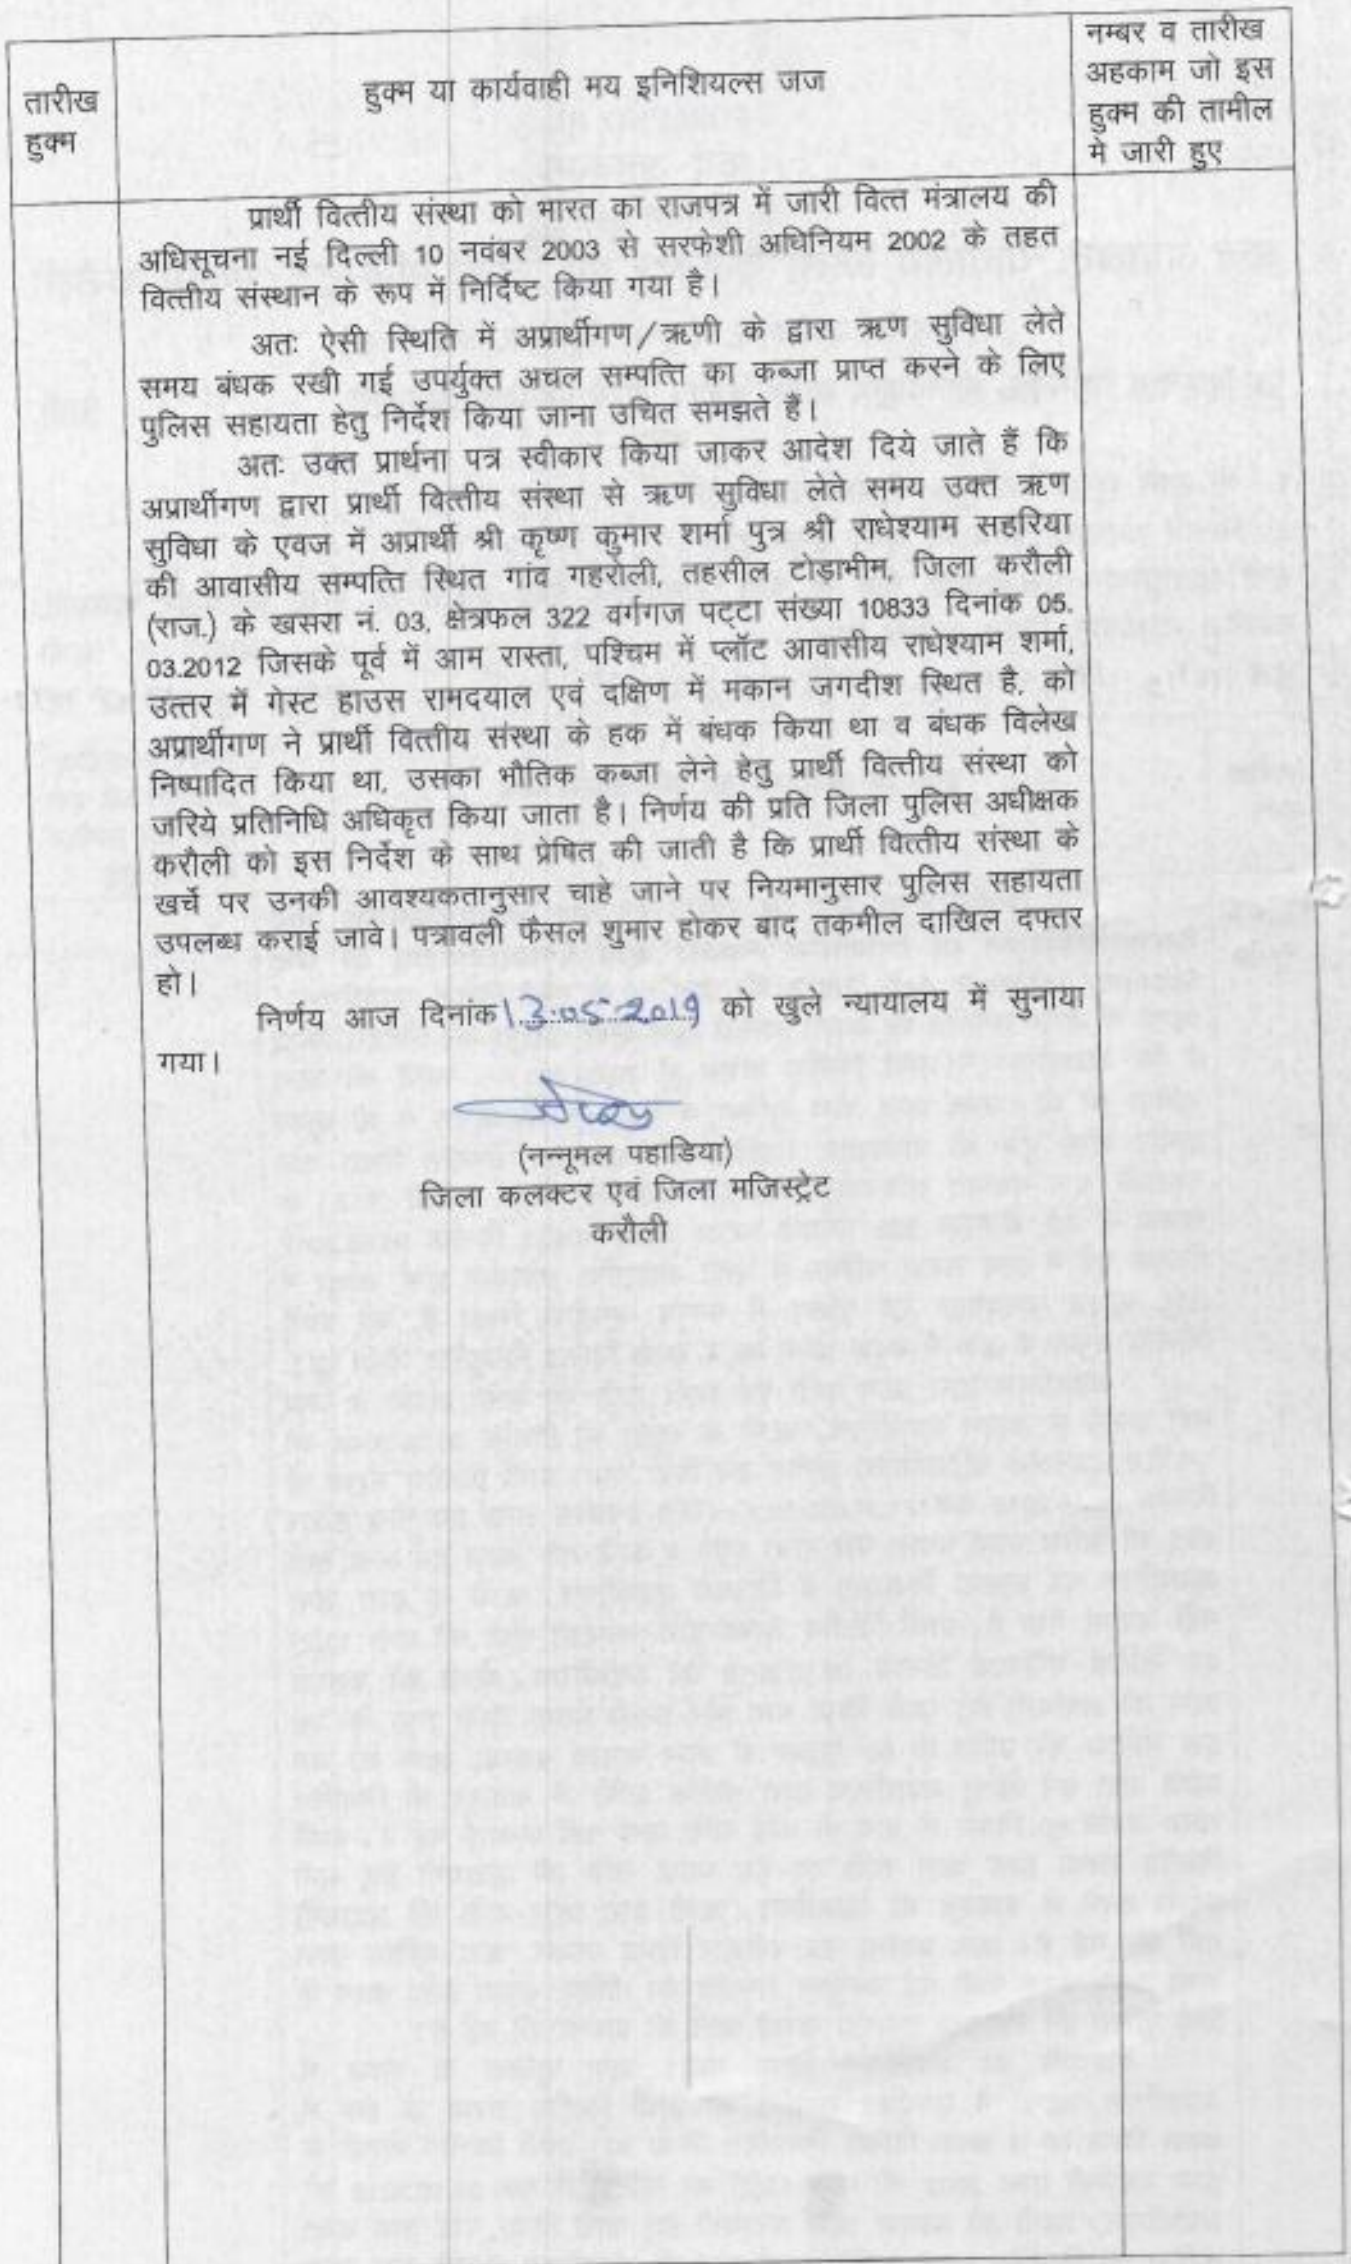 तारीख
हुक्म
हुक्म या कार्यवाही मय इनिशियल्स जज
नम्बर व तारीख
अहकाम जो इस
हुक्म की तामील
मे जारी हुए
प्रार्थी वित्तीय संस्था को भारत का राजपत्र में जारी वित्त मंत्रालय की
अधिसूचना नई दिल्ली 10 नवंबर 2003 से सरफेशी अधिनियम 2002 के तहत
वित्तीय संस्थान के रूप में निर्दिष्ट किया गया है।
अतः ऐसी स्थिति में अप्रार्थीगण/ऋणी के द्वारा ऋण सुविधा लेते
समय बंधक रखी गई उपर्युक्त अचल सम्पत्ति का कब्जा प्राप्त करने के लिए
पुलिस सहायता हेतु निर्देश किया जाना उचित समझते हैं।
अतः उक्त प्रार्थना पत्र स्वीकार किया जाकर आदेश दिये जाते हैं कि
अप्रार्थीगण द्वारा प्रार्थी वित्तीय संस्था से ऋण सुविधा लेते समय उक्त ऋण
सुविधा के एवज में अप्रार्थी श्री कृष्ण कुमार शर्मा पुत्र श्री राधेश्याम सहरिया
की आवासीय सम्पत्ति स्थित गांव गहरोली, तहसील टोड़ाभीम, जिला करौली
(राज.) के खसरा नं. 03, क्षेत्रफल 322 वर्गगज पट्टा संख्या 10833 दिनांक 05.
03.2012 जिसके पूर्व में आम रास्ता, पश्चिम में प्लॉट आवासीय राधेश्याम शर्मा,
उत्तर में गेस्ट हाउस रामदयाल एवं दक्षिण में मकान जगदीश स्थित है, को
अप्रार्थीगण ने प्रार्थी वित्तीय संस्था के हक में बंधक किया था व बंधक विलेख
निष्पादित किया था, उसका भौतिक कब्जा लेने हेतु प्रार्थी वित्तीय संस्था को
जरिये प्रतिनिधि अधिकृत किया जाता है। निर्णय की प्रति जिला पुलिस अधीक्षक
करौली को इस निर्देश के साथ प्रेषित की जाती है कि प्रार्थी वित्तीय संस्था के
खर्चे पर उनकी आवश्यकतानुसार चाहे जाने पर नियमानुसार पुलिस सहायता
उपलब्ध कराई जावे। पत्रावली फैसल शुमार होकर बाद तकमील दाखिल दफ्तर
हो।
निर्णय आज दिनांक 13.05.2019 को खुले न्यायालय में सुनाया
गया।
(नन्नूमल पहाडिया)
जिला कलक्टर एवं जिला मजिस्ट्रेट
करौली